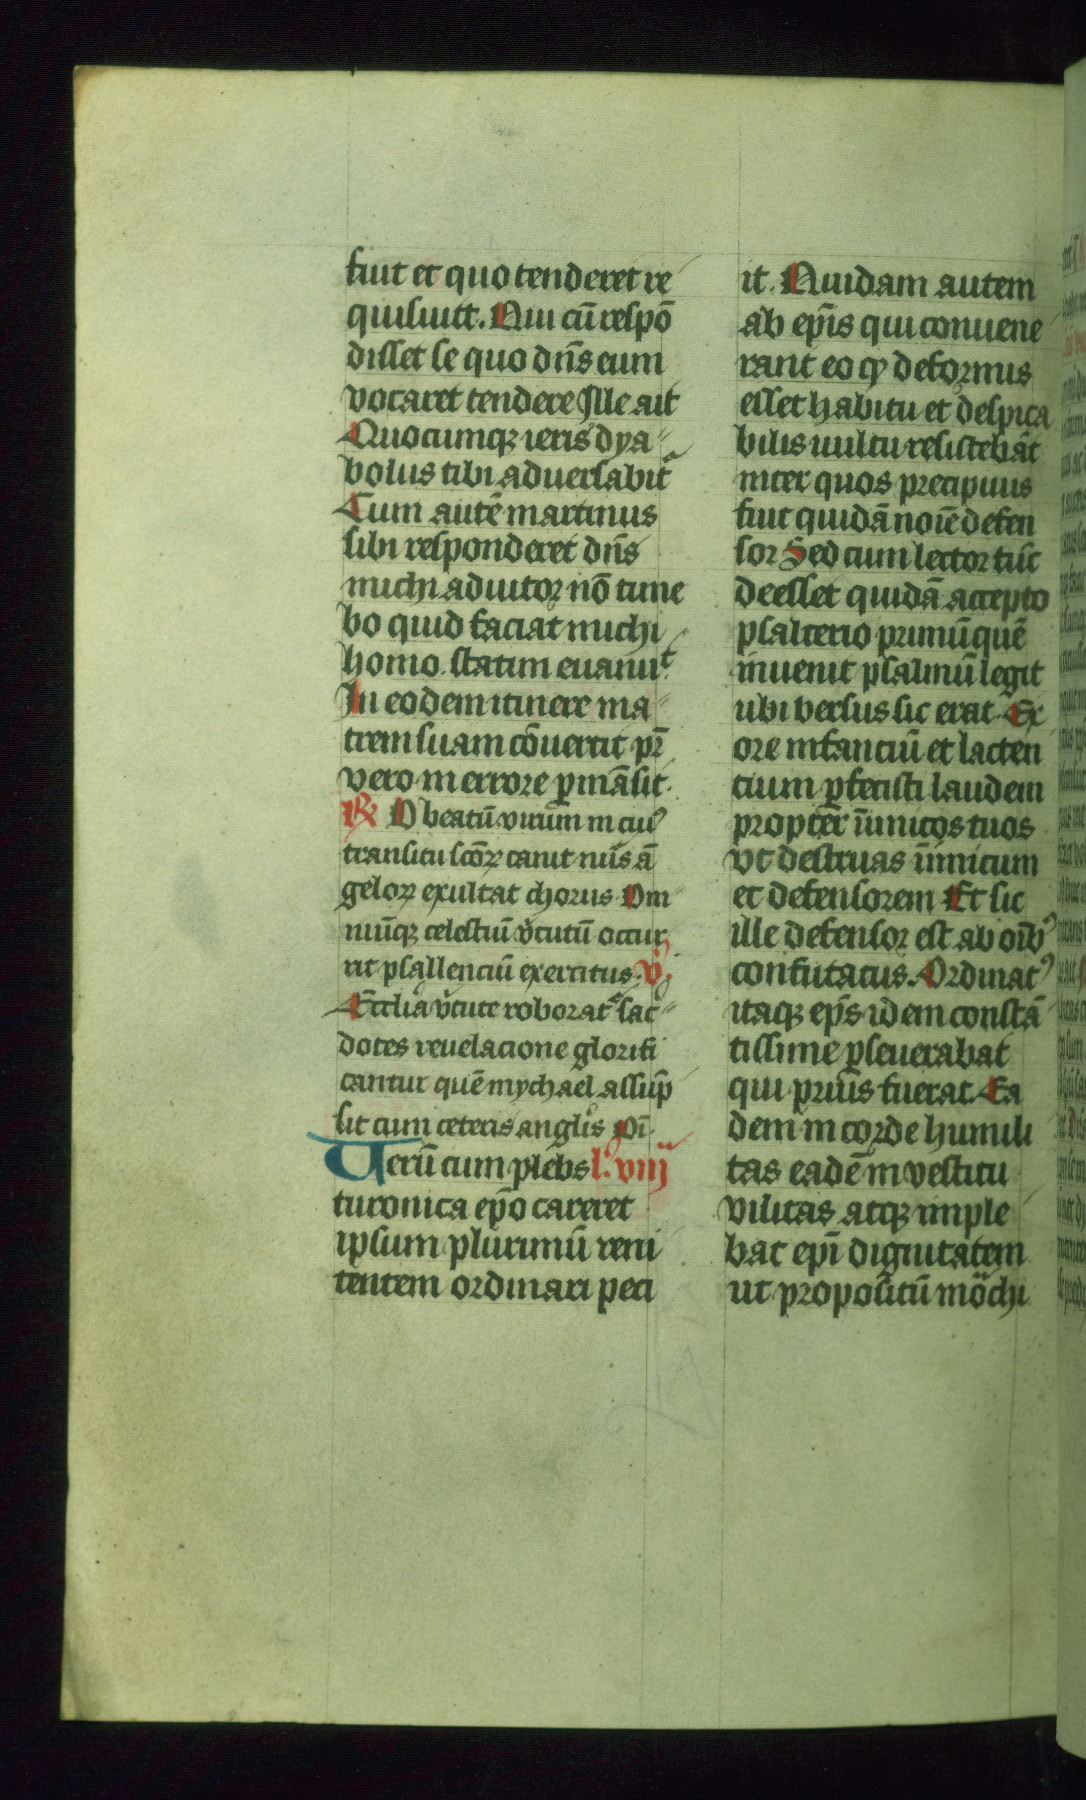 fuit et quo tenderet re
quisiuit. Qui cū respō
disset se quo dn̄s eum
vocaret tendere Ille ait
Quocumqꝫ ieris dya
bolus tibi aduersabit᷑
Cum autē martinus
sibi responderet dn̄s
michi adiutor nō time
bo quid faciat michi
homo. statim euanuit
In eodem itinere ma
trem suam cōuertit pr̄
vero in errore ꝑmāsit.
℟ O beatū virum in cuiꝰ
transitu scōꝝ canit nūs ā
geloꝝ exultat chorus Om
niūqꝫ celestiū v̓tutū occur
rit psallenciū exercitus. v̓.
Ecclīa v̓tute roborat᷑ sac̓
dotes reuelacione glorifi
cantur quē mychael assūp
sit cum ceteris anglīs Oī.
Uerū cum plebs l̓. viij
turonica ep̄o careret
ipsum plurimū reni
tentem ordinari peci
it. Quidam autem
ab ep̄is qui conuene
rant eo ꝙ deformis
esset habitu et despica
bilis uultu resistebāt
inter quos precipuus
fuit quidā noīe defen
sor Sed cum lector tūc
deesset quidā accepto
psalterio primū quē
inuenit psalmū legit
ubi versus sic erat. Ex
ore infanciū et lacten
cium ꝑfecisti laudem
propter īimicos tuos
vt destruas īimicum
et defensorem Et sic
ille defensor est ab oībꝰ
confutatus. Ordinatꝰ
itaqꝫ ep̄s idem constā
tissime ꝑseuerabat
qui priūs fuerat. Ea
dem in corde humili
tas eadē in vestitu
vilitas atqꝫ imple
bat ep̄i dignitatem
ut propositū mōchi